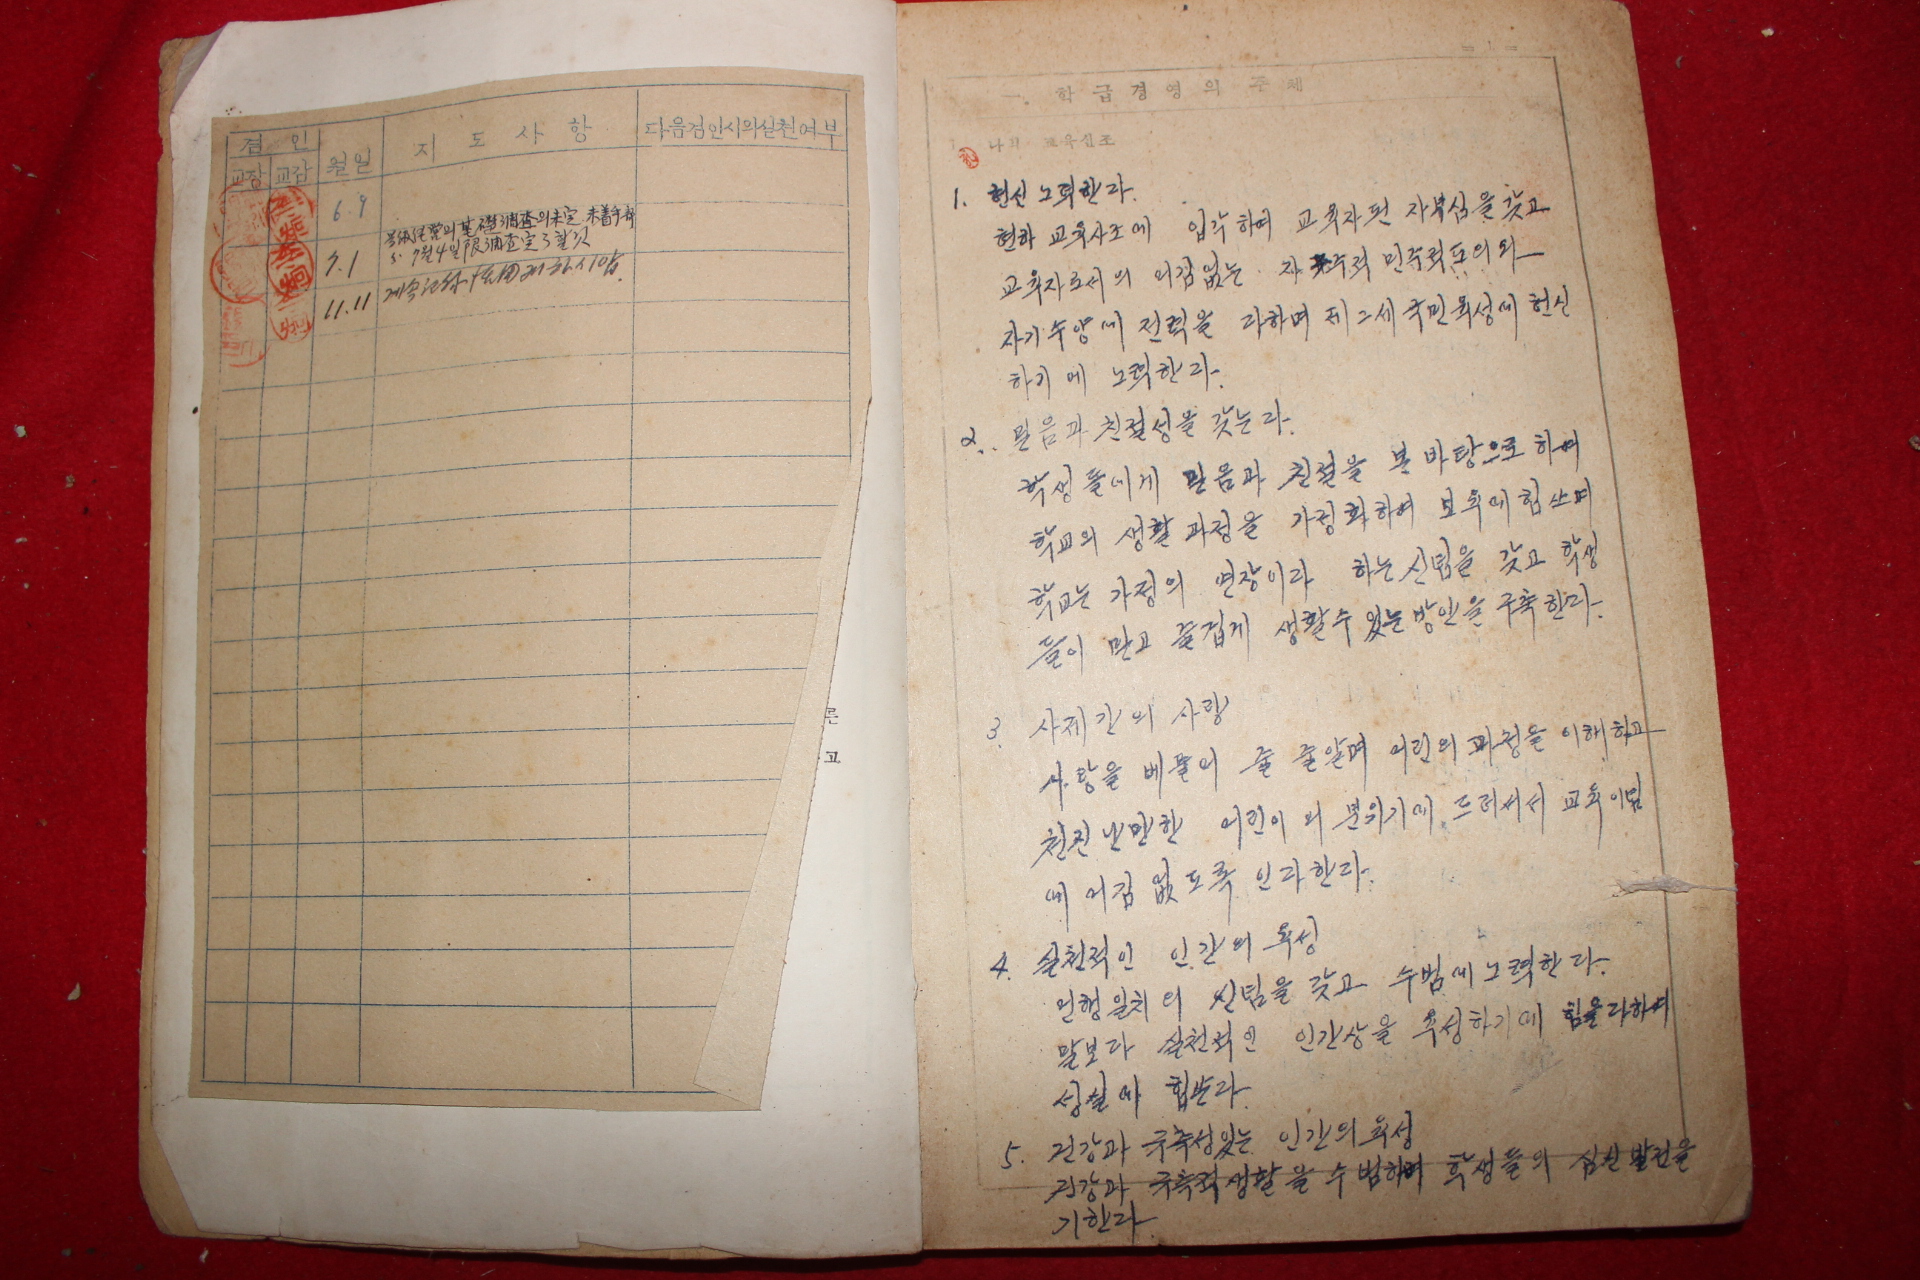 검인
지도사항
다음검인시의실천여부
교장 교감 월일
6.9
7.1
7월4일限調査完了할것
11.11
른
고
= 1 =
一. 학급경영의 주체
나의 교육신조
1. 헌신 노력한다.
현하 교육사조에 입각하여 교육자된 자부심을 갖고
교육자로서의 어김없는 자주적 민주적토의와
자기수양에 전력을 다하며 제二세국민육성에 헌신
하기에 노력한다.
2. 믿음과 친절성을 갖는다.
학생들에게 믿음과 친절을 본바탕으로하여
학교의 생활과정을 가정화하여 보육에힘쓰며
학교는 가정의 연장이라 하는 신념을 갖고 학생
들이 믿고 즐겁게 생활수있는방안을구축한다.
3. 사제간의 사랑
사랑을 베풀어 줄 줄알며 어린의과정을이해하고
천진난만한 어린이의분위기에 드러서서 교육이념
에 어김 없도록 인과한다.
4. 실천적인 인간의 육성
언행일치의 신념을 갖고 수범에노력한다.
말보다 실천적인 인간상을 육성하기에 힘을다하여
성실에 힘쓴다.
5. 건강과 구축성있는 인간의육성
건강과 구축적생활을수범하며 학생들의 심신발전을
기한다.